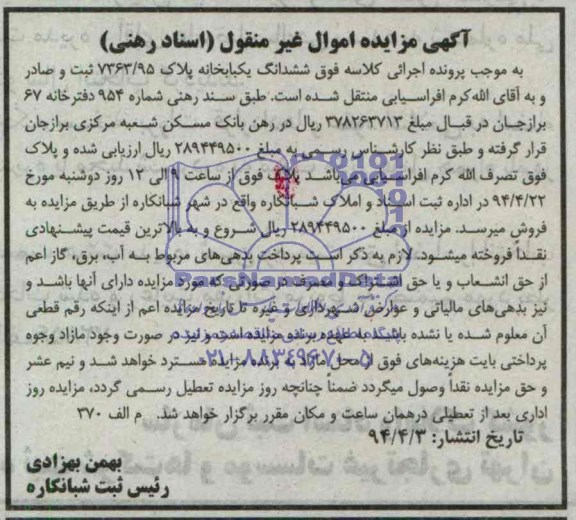 آگهی مزایده اموال غیر منقول (اسناد رهنی)
به موجب پرونده اجرائی کلاسه فوق ششدانگ یکبابخانه پلاک ۷۳۶۳/۹۵ ثبت و صادر
و به آقای الله کرم افراسیابی منتقل شده است. طبق سند رهنی شماره ۹۵۴ دفترخانه ۶۷
برازجان در قبال مبلغ ۳۷۸۲۶۳۷۱۳ ریال در رهن بانک مسکن شعبه مرکزی برازجان
قرار گرفته و طبق نظر کارشناس رسمی به مبلغ ۲۸۹۴۴۹۵۰۰ ریال ارزیابی شده و پلاک
فوق تصرف الله کرم افراسیابی می‌باشد پلاک فوق از ساعت ۹ الی ۱۲ روز دوشنبه مورخ
۹۴/۴/۲۲ در اداره ثبت اسناد و املاک شبانکاره واقع در شهر شبانکاره از طریق مزایده به
فروش میرسد. مزایده از مبلغ ۲۸۹۴۴۹۵۰۰ ریال شروع و به بالاترین قیمت پیشنهادی
نقداً فروخته میشود. لازم به ذکر است پرداخت بدهی‌های مربوط به آب، برق، گاز اعم
از حق انشعاب و یا حق اشتراک و مصرف در صورتی که مورد مزایده دارای آنها باشد و
نیز بدهی‌های مالیاتی و عوارض شهرداری و غیره تا تاریخ مزایده اعم از اینکه رقم قطعی
آن معلوم شده یا نشده باشد به عهده برنده مزایده است و نیز در صورت وجود مازاد وجوه
پرداختی بابت هزینه‌های فوق از محل مازاد به برنده مزایده مسترد خواهد شد و نیم عشر
و حق مزایده نقداً وصول میگردد ضمناً چنانچه روز مزایده تعطیل رسمی گردد، مزایده روز
اداری بعد از تعطیلی درهمان ساعت و مکان مقرر برگزار خواهد شد. م الف ۳۷۰
تاریخ انتشار: ۹۴/۴/۳
بهمن بهزادی
رئیس ثبت شبانکاره
ParsNamadData
۰۲۱-۸۸۳۴۹۶۷۰-۵